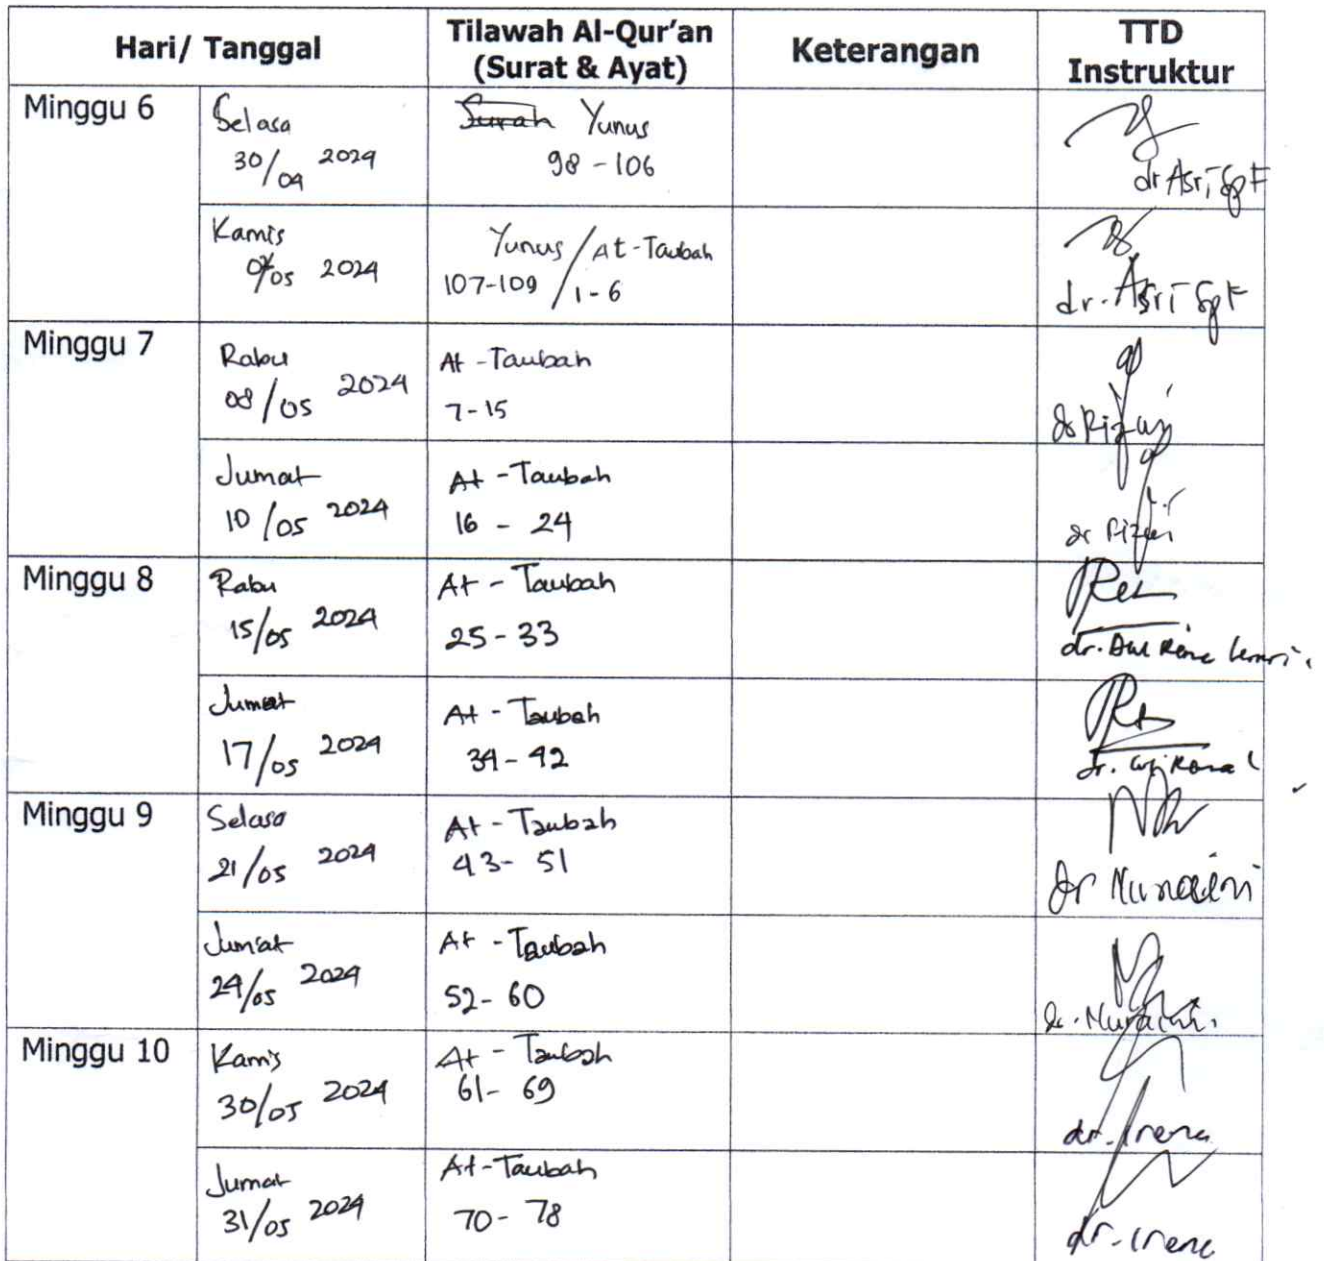 Hari/ Tanggal
Tilawah Al-Qur'an
(Surat & Ayat)
Keterangan
TTD
Instruktur
Minggu 6
Selasa
30/04 2024
Surah Yunus
98 - 106
dr Asri SpF
Kamis
05 2024
Yunus / At-Taubah
107-109 / 1-6
dr. Asri SpF
Minggu 7
Rabu
08/05 2024
At-Taubah
7-15
dr Rizki
Jumat
10/05 2024
At-Taubah
16 - 24
dr
Minggu 8
Rabu
15/05 2024
At-Taubah
25-33
dr.
Jumat
17/05 2024
At-Taubah
34-42
dr.
Minggu 9
Selasa
21/05 2024
At-Taubah
43-51
dr Nuraini
Jumat
24/05 2024
At-Taubah
52-60
dr. Nuraini
Minggu 10
Kamis
30/05 2024
At-Taubah
61-69
dr. Irena
Jumat
31/05 2024
At-Taubah
70-78
dr. Irena